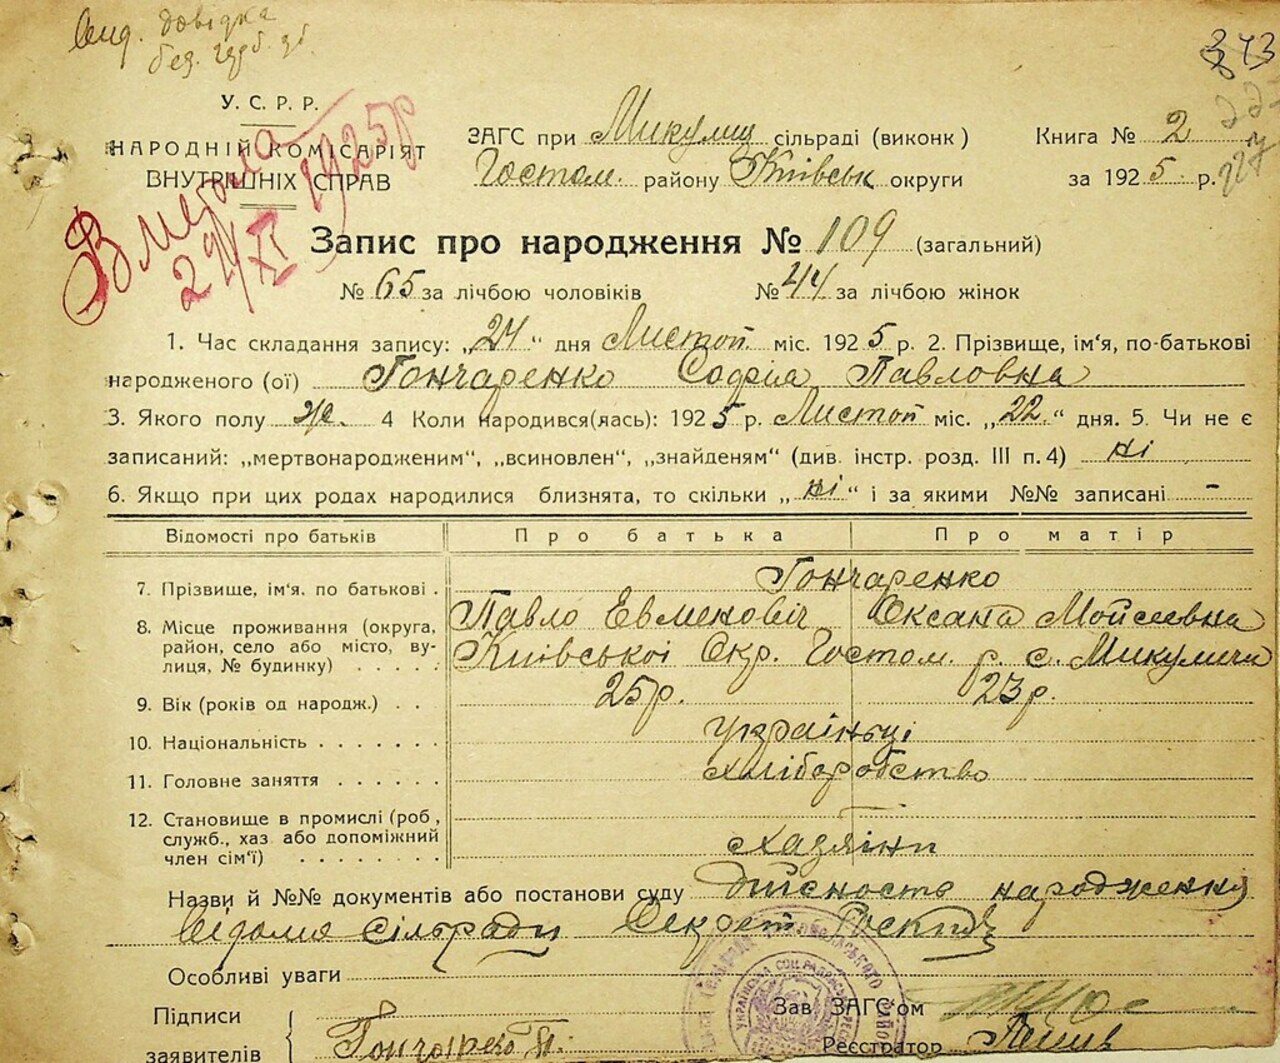 Вид. довідка
без. герб. зб.
343
У. С. Р. Р.
НАРОДНІЙ КОМІСАРІЯТ
ВНУТРІШНІХ СПРАВ
В метрика
24/XI 1925р
ЗАГС при Микулиц сільраді (виконк)
Гостом. району Київськ округи
Книга № 2
за 1925 р.
Запис про народження № 109 (загальний)
№ 65 за лічбою чоловіків № 44 за лічбою жінок
1. Час складання запису: „24“ дня Листоп. міс. 1925 р. 2. Прізвище, ім'я, по-батькові
народженого (ої) Гончаренко Софія Павловна
3. Якого полу ж. 4 Коли народився(лась): 1925 р. Листоп міс. „22.“ дня. 5. Чи не є
записаний: „мертвонародженим“, „всиновлен“, „знайденям“ (див. інстр. розд. III п. 4) ні
6. Якщо при цих родах народилися близнята, то скільки „ні“ і за якими №№ записані -
Відомості про батьків Про батька Про матір
7. Прізвище, ім'я. по батькові . Гончаренко
Павло Евменовіч Оксана Мойсеевна
8. Місце проживання (округа,
район, село або місто, ву-
лиця, № будинку) . . . . .
Київської Окр. Гостом. р. с. Микуличи
9. Вік (років од народж.) . . 25р. 23р.
10. Національність . . . . . . . Українці
11. Головне заняття . . . . . . хліборобство
12. Становище в промислі (роб,
служб., хаз або допоміжний
член сім'ї) . . . . . . . . Хазяіни
Назви й №№ документів або постанови суду Дійсность народження
Відома сільради Секрет.
Особливі уваги
Підписи
заявителів
Гончаренко П.
Зав ЗАГС'ом
Реєстратор